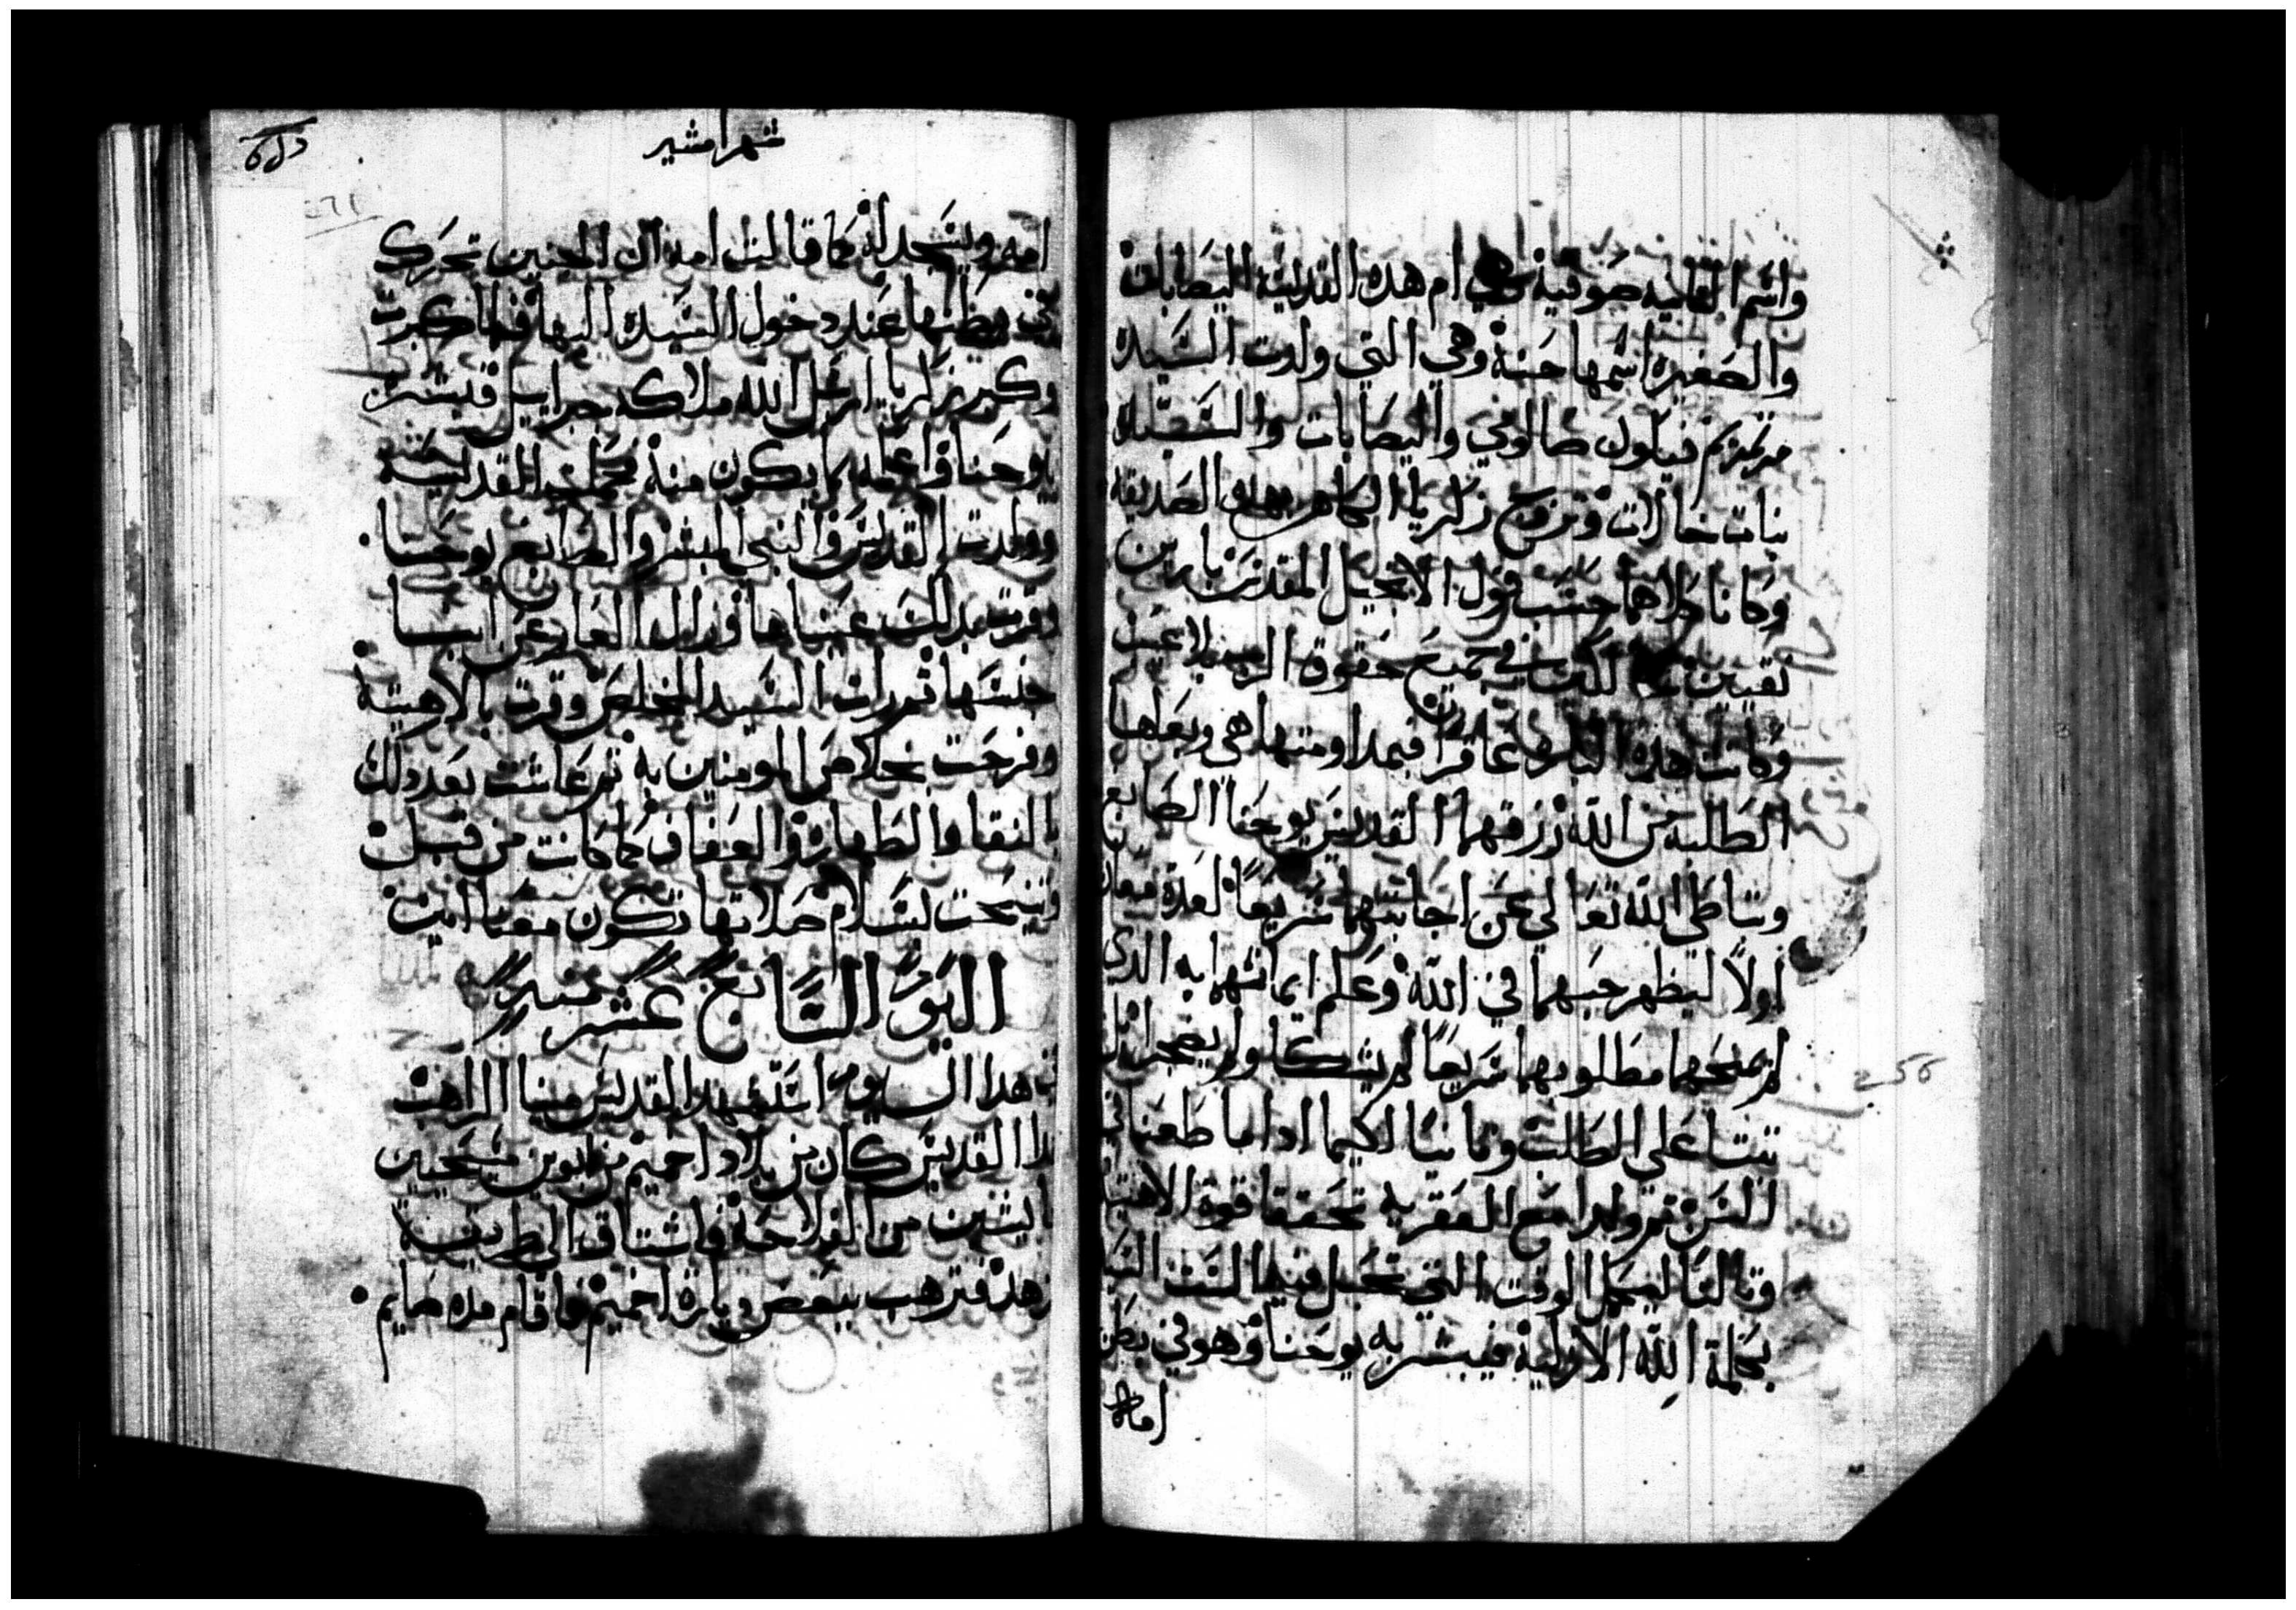 واسم الثانيه صوفية وهي ام هذه القديسة اليصابات
والصغيره اسمها حنة وهي التي ولدت السيده
مرتمريم فيكون صالومي واليصابات والسيده
بنات خالات وتزوج زكريا الكاهن بهذه الصديقة
وكانا كلاهما حسب قول الانجيل المقدس بارين
تقيين سالكين في جميع حقوق الرب بلا عيب
وكانت هذه الباره عاقرا فبمداومتها هي وبعلها
الطلبه من الله رزقهما القديس يوحنا الصابغ
وتباطى الله تعالى عن اجابتهما سريعا لعدة معان
اولا ليظهر حبهما في الله وعلم ايمانهما به الذي
لم يمنحهما مطلوبهما سريعا لم يشكا ولم يضجرا بل
ثبتا على الطلب وثانيا لكيما اذا ما طعنا في
السن ثم ولدا مع العقريه تحققا قوة الاهية
وثالثا ليكمل الوقت التي تحبل فيها الست السيدة
بكلمة الله الازلية فيبشر به يوحنا وهو في بطن
امه
شهر امشير
٢٦١
امه ويسجد له كما قالت امه ان الجنين تحرك
في بطنها عند دخول السيده اليها فلما كبرت
وكبر زكريا ارسل الله ملاكه جبراييل فبشره
بيوحنا واعلمه بما يكون منه فحملت القديسه
وولدت القديس والنبي المبشر والصابغ يوحنا
وقرت بذلك عيناها وزال العار عن ابنا
جنسها ثم رات السيد المخلص وقرت بالاهيته
وفرحت بخلاص المومنين به ثم عاشت بعد ذلك
بالنقا والطهاره والعفاف كما كانت من قبل
وتنيحت بسلام صلاتها تكون معنا امين
اليوم السابع عشر منه
في هذا اليوم استشهد القديس مينا الراهب
هذا القديس كان من بلاد اخميم من ابوين مسيحيين
عايشين من الفلاحة فاشتاق الى طريقة
الزهد فترهب ببعض ديارة اخميم واقام مده صايم
256